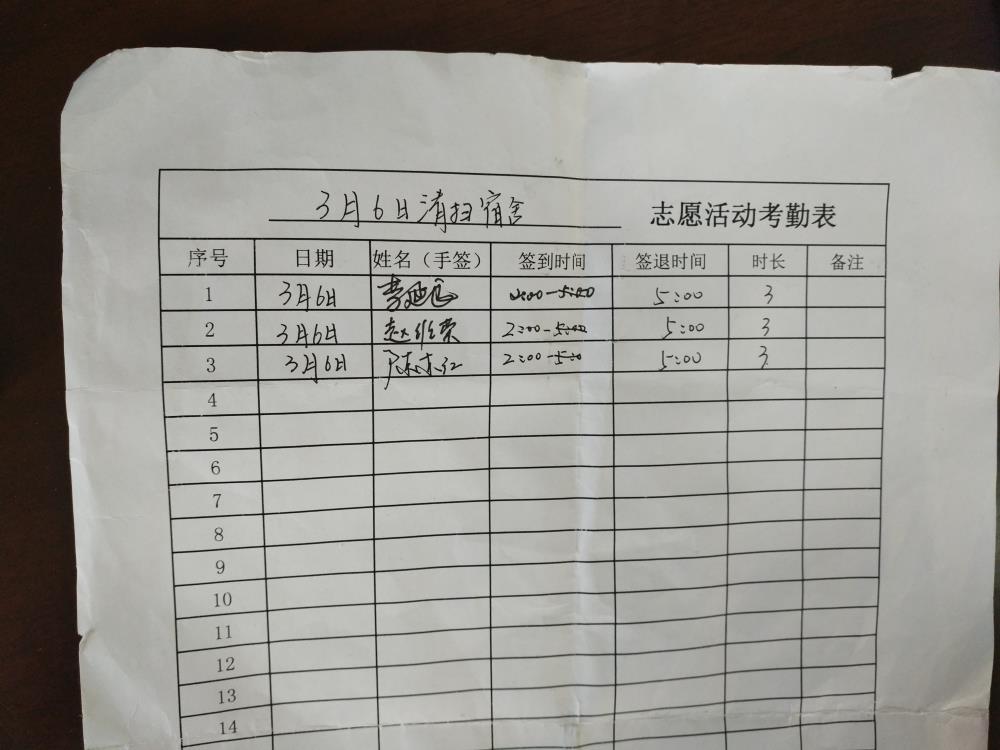 3月6日清扫宿舍 志愿活动考勤表
序号 日期 姓名（手签） 签到时间 签退时间 时长 备注
1 3月6日 2:00-5:00 5:00 3
2 3月6日 赵维荣 2:00-5:00 5:00 3
3 3月6日 陈东红 2:00-5:00 5:00 3
4
5
6
7
8
9
10
11
12
13
14